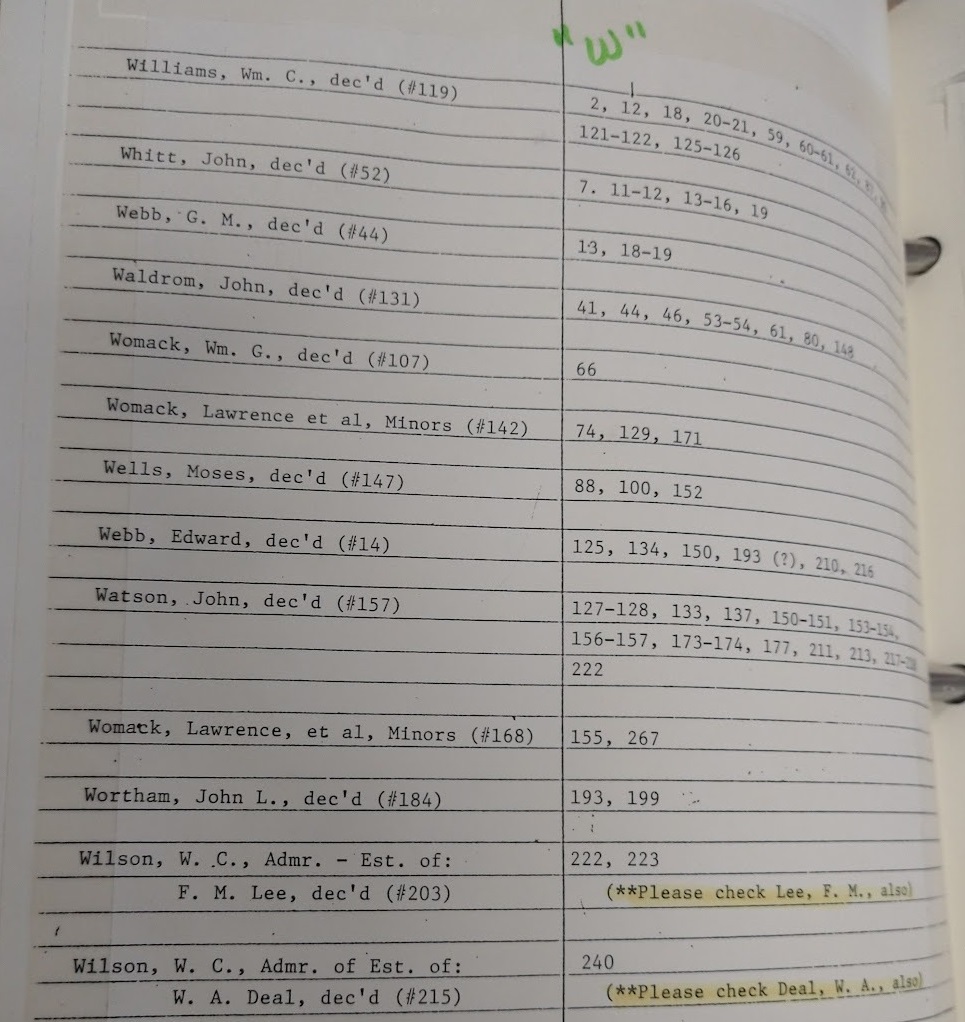 "W"
Williams, Wm. C., dec'd (#119) 2, 12, 18, 20-21, 59, 60-61, 62,
121-122, 125-126
Whitt, John, dec'd (#52) 7. 11-12, 13-16, 19
Webb, G. M., dec'd (#44) 13, 18-19
Waldrom, John, dec'd (#131) 41, 44, 46, 53-54, 61, 80, 148
Womack, Wm. G., dec'd (#107) 66
Womack, Lawrence et al, Minors (#142) 74, 129, 171
Wells, Moses, dec'd (#147) 88, 100, 152
Webb, Edward, dec'd (#14) 125, 134, 150, 193 (?), 210, 216
Watson, John, dec'd (#157) 127-128, 133, 137, 150-151, 153-154,
156-157, 173-174, 177, 211, 213,
222
Womack, Lawrence, et al, Minors (#168) 155, 267
Wortham, John L., dec'd (#184) 193, 199
Wilson, W. C., Admr. - Est. of: 222, 223
F. M. Lee, dec'd (#203) (**Please check Lee, F. M., also)
Wilson, W. C., Admr. of Est. of: 240
W. A. Deal, dec'd (#215) (**Please check Deal, W. A., also)